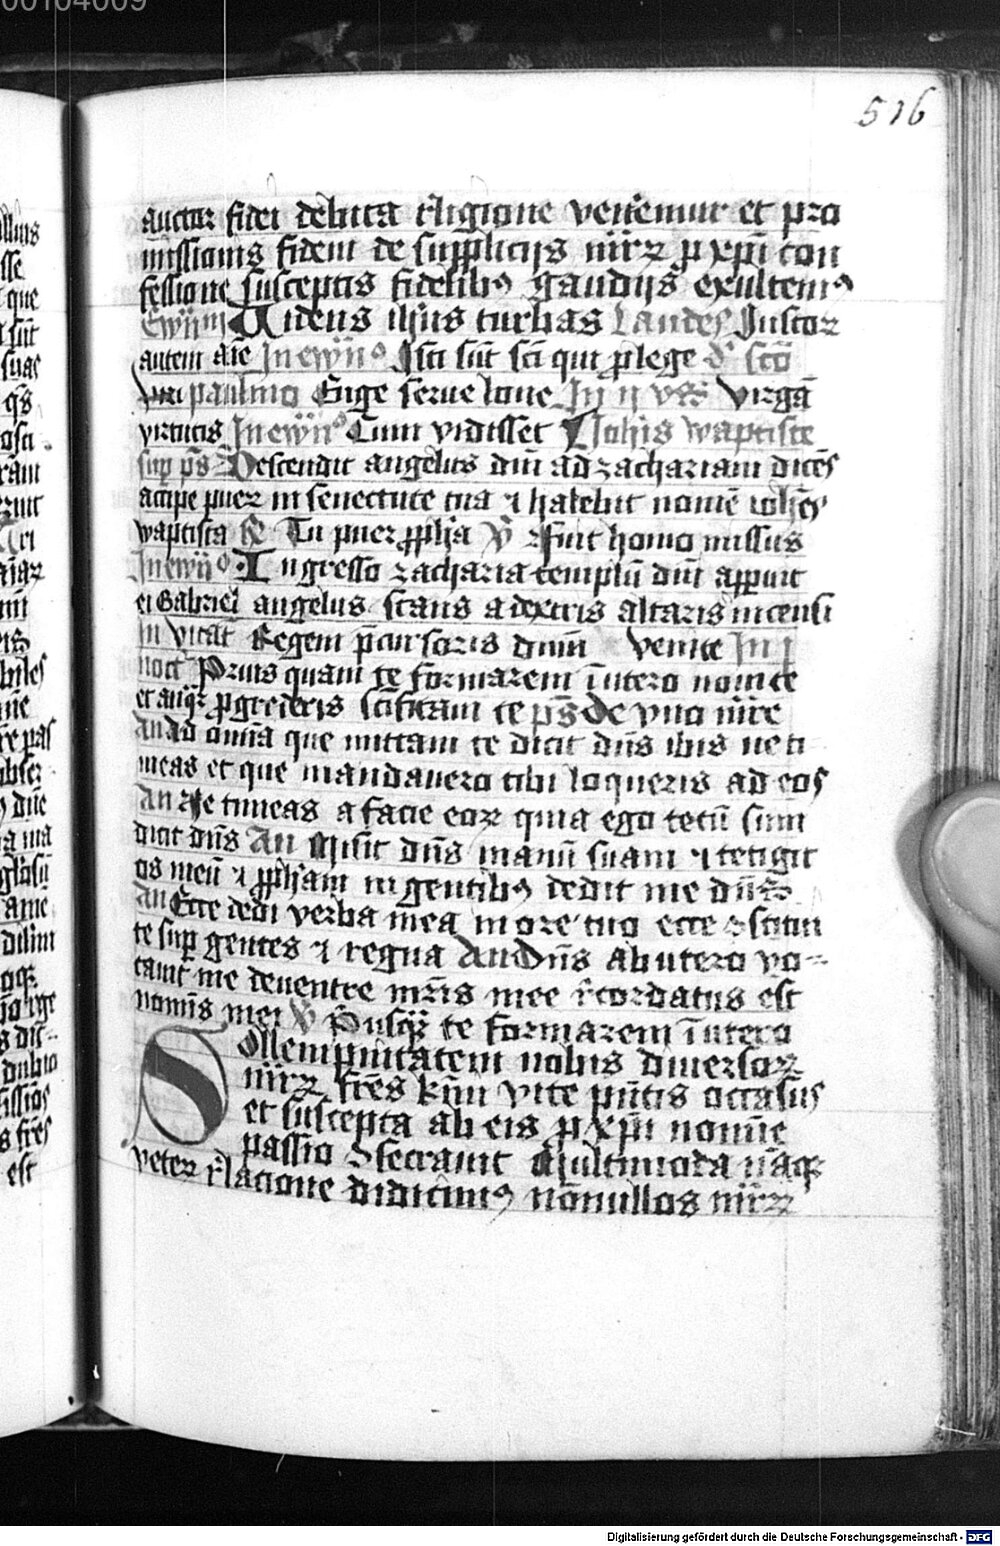 516
auctor fidei debita r̄ligione veneremur et pro
missionis fidem de supplicijs nr̄oꝝ p xp̄i con
fessione susceptis fidelibꝰ gaudijs exultemꝰ
Ewn̄m Videns ih̄us turbas Laudes Justoꝝ
autem aīe In ewn̄º Isti sūt sc̄i qui p lege d̄i scō
paulino Euge serue bone In ij vēs virgā
virtutis In ewn̄º Cum vidisset Joh̄is waptiste
sup p̄s Descendit angelus dn̄i ad zachariam dicēs
accipe puer in senectute tua ⁊ habebit nomē ioh̄es
waptista Tu puer ꝓph̄a V̄ Fuit homo missus
In ewn̄º Ingresso zacharia templū dn̄i apparuit
ei Gabriel angelus stans a dextris altaris incensi
In vitat̄ Regem p̄cursoris dn̄m venite In j
noct̄ Prius quam te formarem ī utero noui te
et antq̄ꝫ ꝓgredieris sc̄ificaui te p̄s De vno m̄re
An ad om̄ia que mittam te dicit dn̄s ibis ne ti
meas et que mandauero tibi loqueris ad eos
An Ne timeas a facie eoꝝ quia ego tecū sum
dicit dn̄s An Misit dn̄s manū suam ⁊ tetigit
os meū ⁊ ꝓph̄am in gentibꝰ dedit me dn̄s
An Ecce dedi verba mea in ore tuo ecce ↄstitui
te sup gentes ⁊ regna An Dn̄s ab utero vo-
cauit me de ventre mr̄is mee r̄cordatus est
nominis mei V̄ P̄usq̄ꝫ te formarem ī utero
Sollempnitatem nobis diuersoꝝ
nr̄oꝝ fr̄es kr̄mi vite pn̄tis occasus
et suscepta ab eis p xp̄i nomine
passio ↄsecrauit Multimoda nāqꝫ
veteꝝ r̄lacione didicimꝰ nōnullos nr̄oꝝ
Digitalisierung gefördert durch die Deutsche Forschungsgemeinschaft - DFG